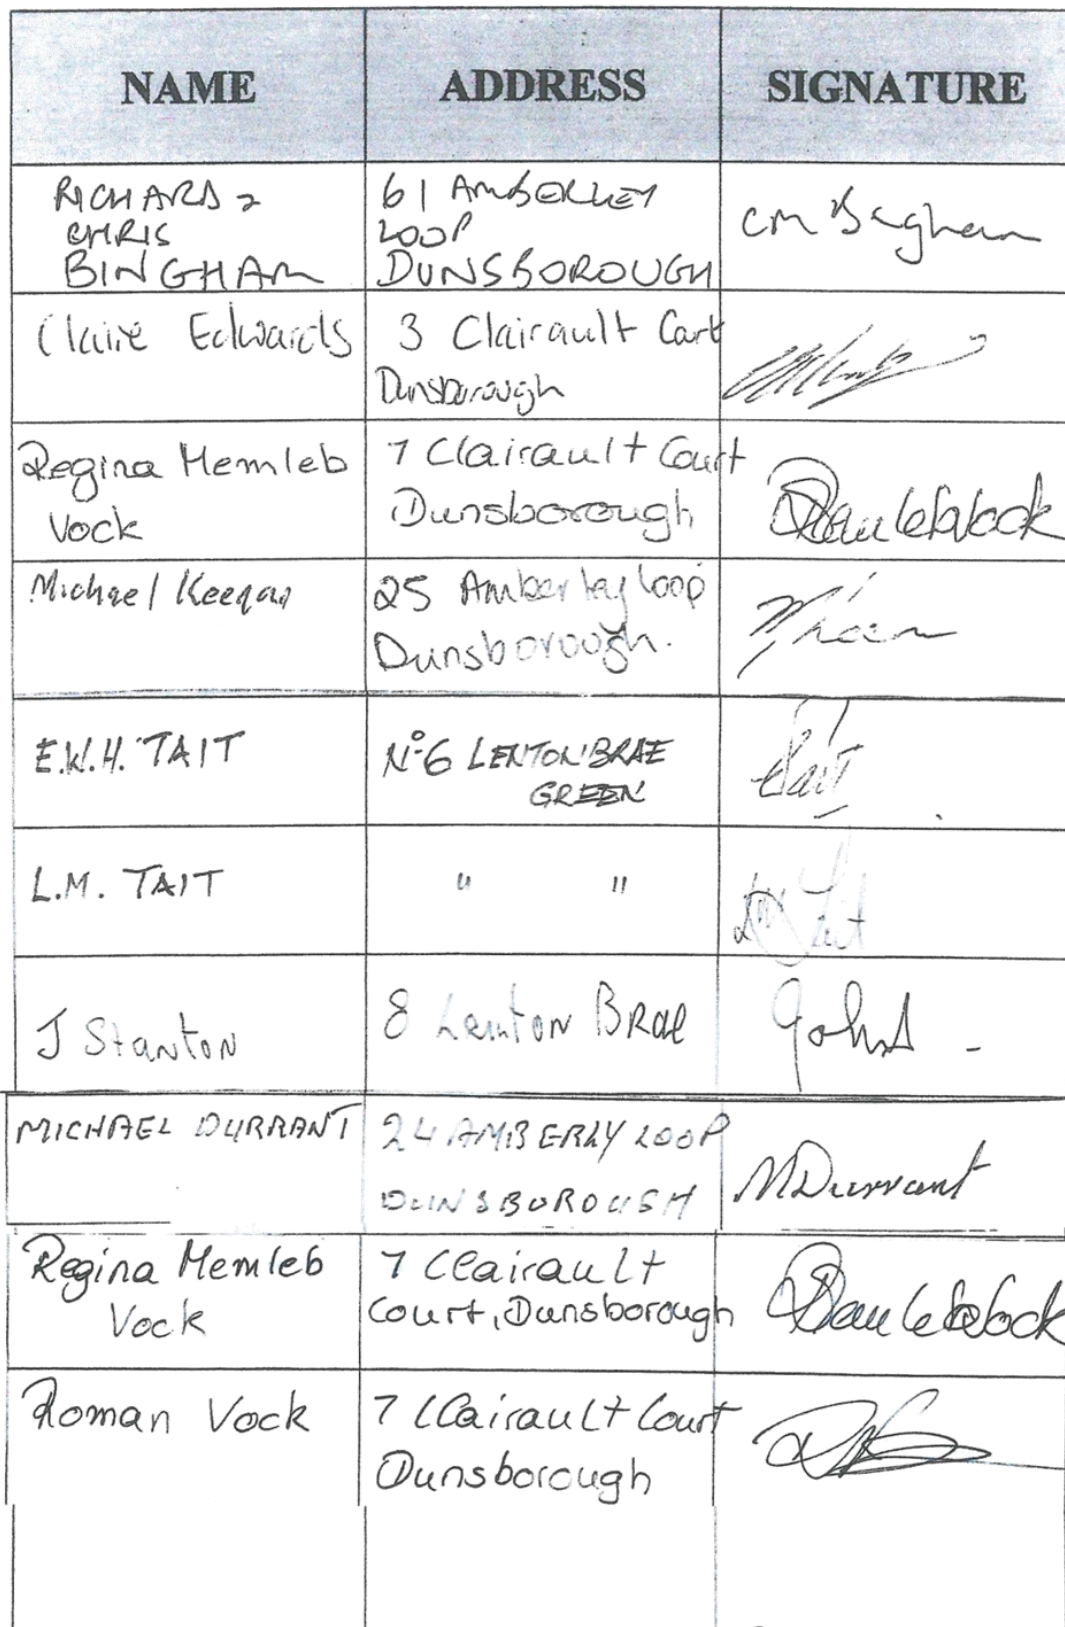 NAME ADDRESS SIGNATURE
RICHARD & 61 AMBERLEY
CHRIS LOOP CM Bingham
BINGHAM DUNSBOROUGH
Claire Edwards 3 Clairault Court
Dunsborough
Regina Memleb 7 Clairault Court
Vock Dunsborough
Michael Keenan 25 Amberley loop
Dunsborough.
E.W.H. TAIT No 6 LENTON BRAE Tait
GREEN
L.M. TAIT " " LM Tait
J Stanton 8 Lenton Brae
MICHAEL DURRANT 24 AMBERLY LOOP
DUNSBOROUGH MDurrant
Regina Memleb 7 Clairault
Vock Court, Dunsborough
Roman Vock 7 Clairault Court
Dunsborough